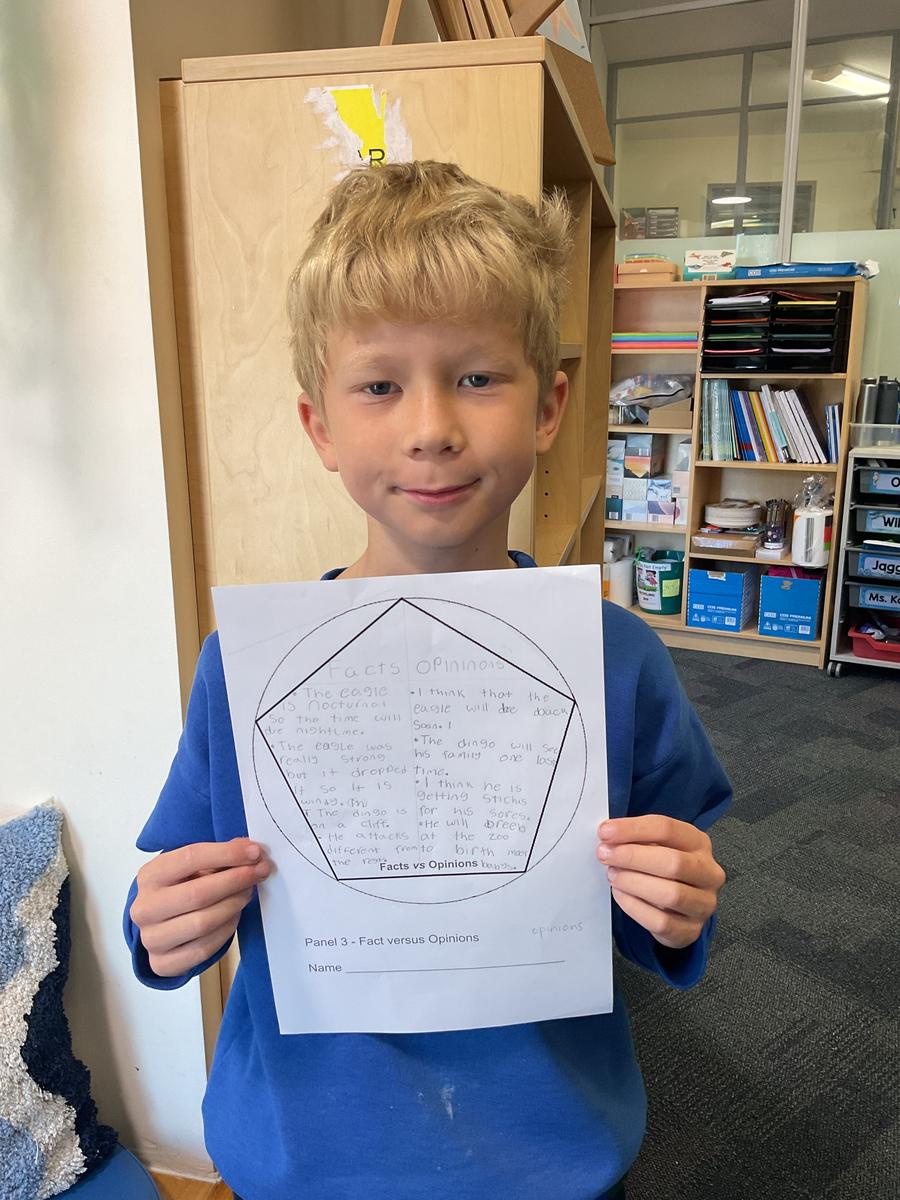 R
Facts
OPININOIS
• The eagle
is nocturnal
so the time will
be nightime.
• The eagle was
really strong
but it dropped
it so it is
windy.
• The dingo is
on a cliff.
• He attacks
different from
the rest
• I think that the
eagle will be back
soon.
• The dingo will see
his family one last
time.
• I think he is
getting stichis
for his sores.
• He will breeb
at the zoo
to birth mor
Facts vs Opinions
Panel 3 - Fact versus Opinions
opinions
Name
COS PREMIUM
COS PREMIUM
COS PREMIUM
O
Wil
Jagg
Ms. Ka